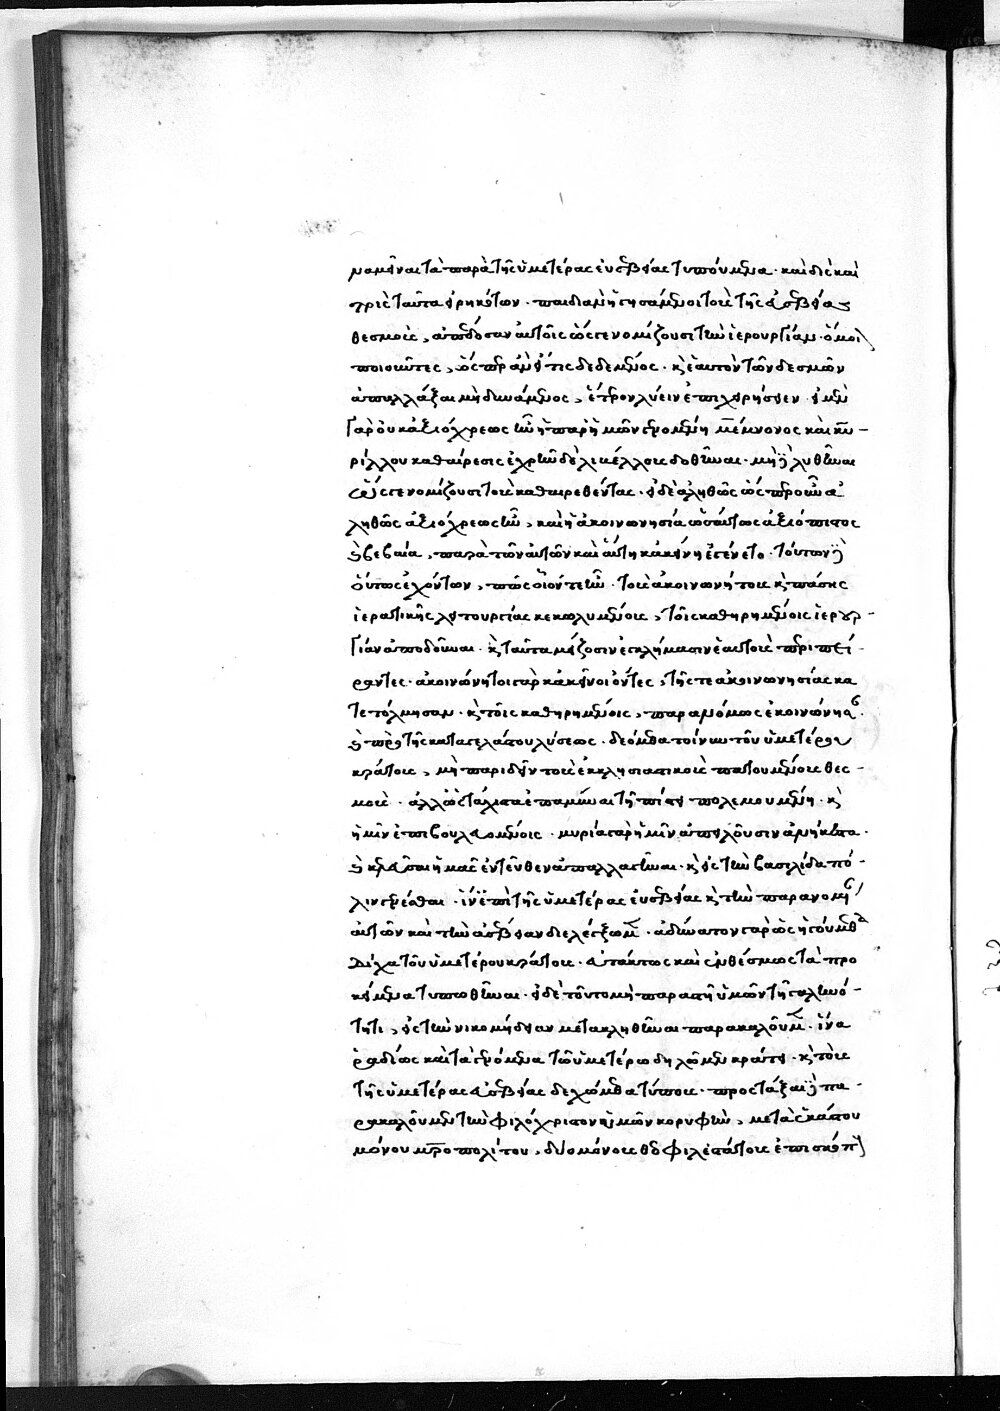 μαθεῖναι τὰ παρὰ τῆς ὑμετέρας εὐσεβείας τυπούμενα· καὶ διὰ καὶ
τρὶς ταῦτα εἰρηκότων· παιδιὰν ἡγησάμενοι τοὺς τῆς εὐσεβείας
θεσμοὺς, ἀπέδοσαν αὐτοῖς ὥς γε νομίζουσι τὴν ἱερουργίαν· ὅμοιον
ποιοῦντες, ὡς περ ἂν εἴ τις δεδεμένος· καὶ ἑαυτὸν τῶν δεσμῶν
ἀπαλλάξαι μὴ δυνάμενος, ἕτερον λύειν ἐπιχειρήσειεν· εἰ μὲν
γὰρ οὐκ ἀξιόχρεως ἦν ἡ παρ' ἡμῶν γενομένη μέμνονος καὶ κυ-
ρίλλου καθαίρεσις ἐχρῆν δὲ λικέλλους δοθῆναι· μὴ γὰρ λυθῆναι
ὥς γε νομίζουσι τοὺς καθαιρεθέντας· εἰ δὲ ἀληθῶς ὥς περ οὖν ἀ
ληθῶς ἀξιόχρεως ἦν, καὶ ἡ ἀκοινωνησία ὡσαύτως ἀξιόπιστος
καὶ βεβαία, παρὰ τῶν αὐτῶν καὶ αὕτη κἀκείνη ἐγένετο· τούτων γὰρ
οὕτως ἐχόντων, πῶς οἷόν τε ἦν· τοὺς ἀκοινωνήτους καὶ πάσης
ἱερατικῆς λειτουργίας κεκωλυμένους, τοῖς καθῃρημένοις ἱερουρ-
γίαν ἀποδοῦναι· καὶ ταῦτα μείζοσιν ἐγκλήμασιν ἑαυτοὺς περιπεί-
ραντες· ἀκοινώνητοι γὰρ κἀκεῖνοι ὄντες, τῆς τε ἀκοινωνησίας κα
τετόλμησαν· καὶ τοῖς καθῃρημένοις, παρανόμως ἐκοινώνησαν·
καὶ πρὸ τῆς καταγελάστου λύσεως· δεόμεθα τοίνυν τοῦ ὑμετέρου
κράτους, μὴ παριδεῖν τοὺς ἐκκλησιαστικοὺς πατουμένους θεσ-
μοὺς· ἀλλ' ὡς τάχιστα ἐπαμῦναι τῇ πίστει πολεμουμένῃ· καὶ
ἡμῖν ἐπιβουλευομένοις· μυρία γὰρ ἡμῖν ἀπειλοῦσιν ἀνήκεστα·
καὶ κελεῦσαι ἡμᾶς ἐντεῦθεν ἀπαλλαγῆναι· καὶ εἰς τὴν βασιλίδα πό-
λιν γενέσθαι· ἵν' ἐπὶ τῆς ὑμετέρας εὐσεβείας καὶ τὴν παρανομίαν
αὐτῶν καὶ τὴν ἀσέβειαν διελέγξωμεν· ἀδύνατον γὰρ ὡς ἡγούμεθα
δίχα τοῦ ὑμετέρου κράτους· εὐτάκτως καὶ ἐνθέσμως τὰ προ
κείμενα τυπωθῆναι· εἰ δὲ τοῦτο μὴ παραστῇ ὑμῶν τῇ γαληνό-
τητι, εἰς τὴν νικομήδειαν μετακληθῆναι παρακαλοῦμεν· ἵνα
ῥαδίως καὶ τὰ γενόμενα τῷ ὑμετέρῳ δηλῶμεν κράτει· καὶ τοὺς
τῆς ὑμετέρας εὐσεβείας δεχώμεθα τύπους· προστάξαι γὰρ πα-
ρακαλοῦμεν τὴν φιλόχριστον ἡμῶν κορυφὴν, μετὰ ἑκάστου
μόνου μητροπολίτου, δύο μόνους θεοφιλεστάτους ἐπισκόπους